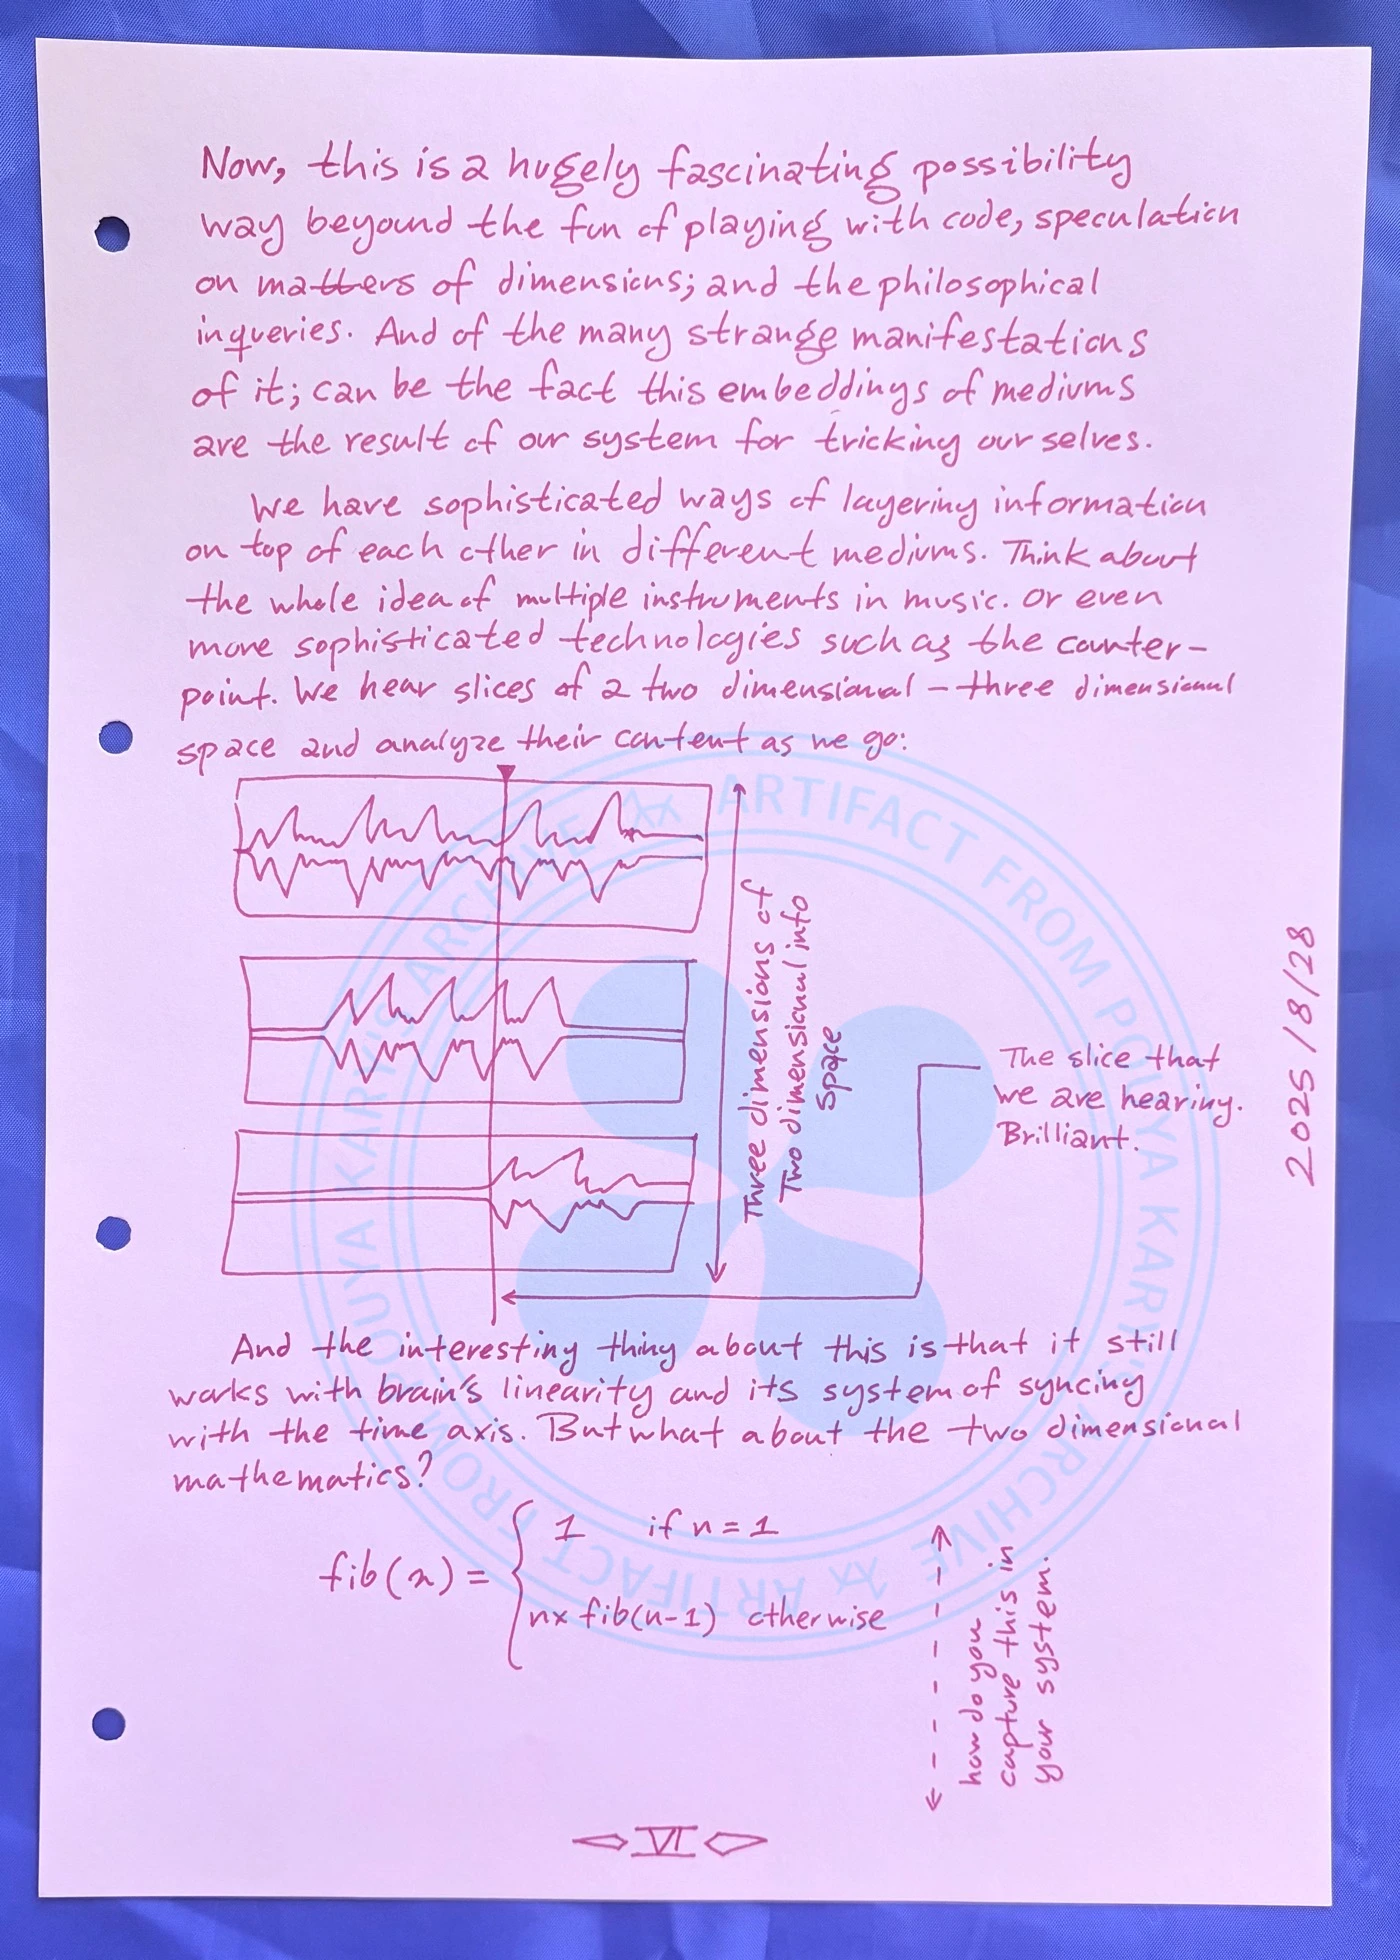 Now, this is a hugely fascinating possibility
way beyond the fun of playing with code, speculation
on matters of dimensions; and the philosophical
inqueries. And of the many strange manifestations
of it; can be the fact this embeddings of mediums
are the result of our system for tricking our selves.
We have sophisticated ways of layering information
on top of each other in different mediums. Think about
the whole idea of multiple instruments in music. Or even
more sophisticated technologies such as the counter-
point. We hear slices of a two dimensional - three dimensional
space and analyze their content as we go:
Three dimensions of
Two dimensional into
Space
The slice that
we are hearing.
Brilliant.
2025/8/28
And the interesting thing about this is that it still
works with brain's linearity and its system of syncing
with the time axis. But what about the two dimensional
mathematics?
fib(n) = { 1 if n = 1
n× fib(n-1) otherwise
how do you
capture this in
your system.
VI
ARTIFACT FROM POUYA KARY'S ARCHIVE
ARTIFACT FROM POUYA KARY'S ARCHIVE